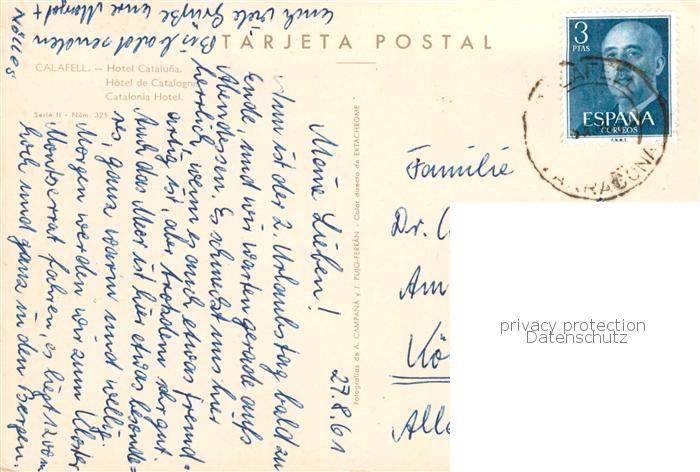 TARJETA POSTAL
CALAFELL. — Hotel Cataluña.
Hôtel de Catalogne
Catalonia Hotel.
Serie II - Núm. 325
Fotografías de A. CAMPAÑÁ y J. PUIG-FERRÁN - Color directo de EKTACHROME
3
PTAS
ESPAÑA
CORREOS
F.N.M.T.
CALAFELL
TARRAGONA
27.8.61
Meine Lieben!
Nun ist der 2. Urlaubstag bald zu
Ende, und wir warten gerade aufs
Abendessen. Es schmeckt uns hier
herrlich, wenn es auch etwas fremd-
artig ist, aber trotzdem sehr gut.
Auch das Meer ist hier etwas besonde-
res, ganz warm und wellig.
Morgen werden wir zum Kloster
Montserrat fahren, es liegt 1200 m
hoch und ganz in den Bergen.
Bis bald senden
Euch viele Grüße Eure Margot +
Familie
Dr.
Am
Kö
Alle
privacy protection
Datenschutz